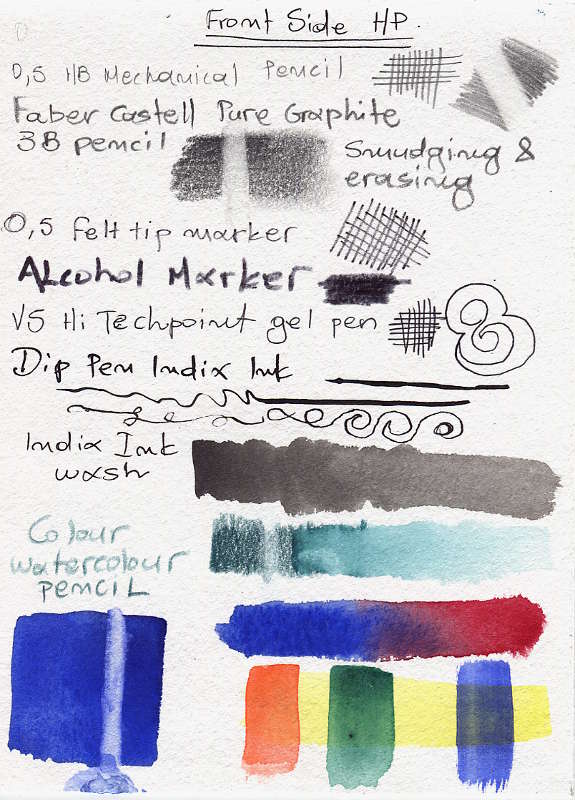 Front Side HP.
0,5 HB Mechanical Pencil
Faber Castell Pure Graphite
3B pencil
Smudging &
erasing
0,5 Felt tip marker
Alcohol Marker
V5 Hi Techpoint gel pen
Dip Pen India Ink
India Ink
wash
Colour
watercolour
pencil